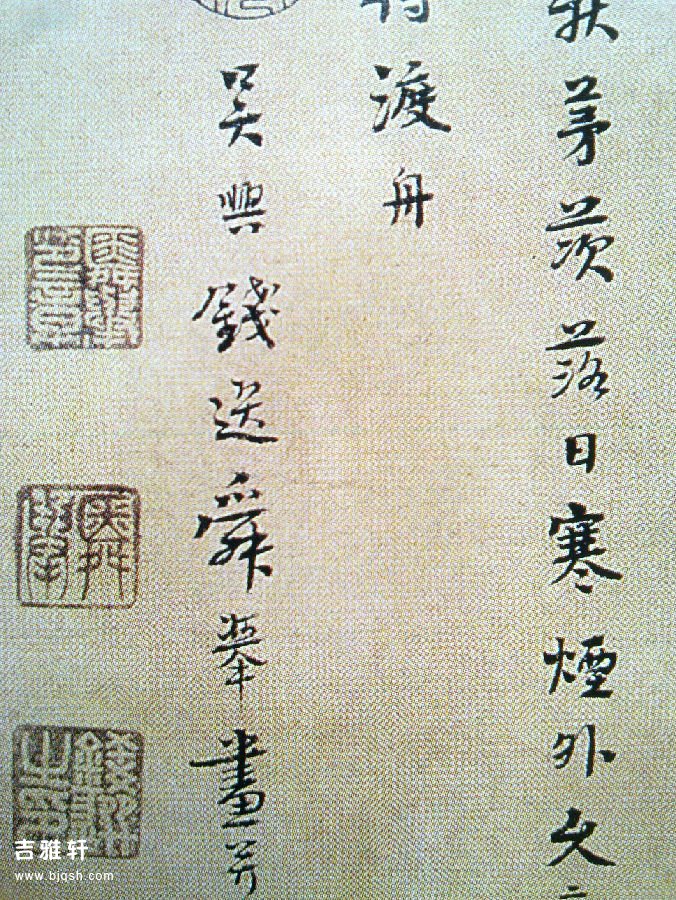 秋茅茨落日寒煙外久
待渡舟
吳興錢選舜舉畫并
吉雅轩
www.bjqsh.com